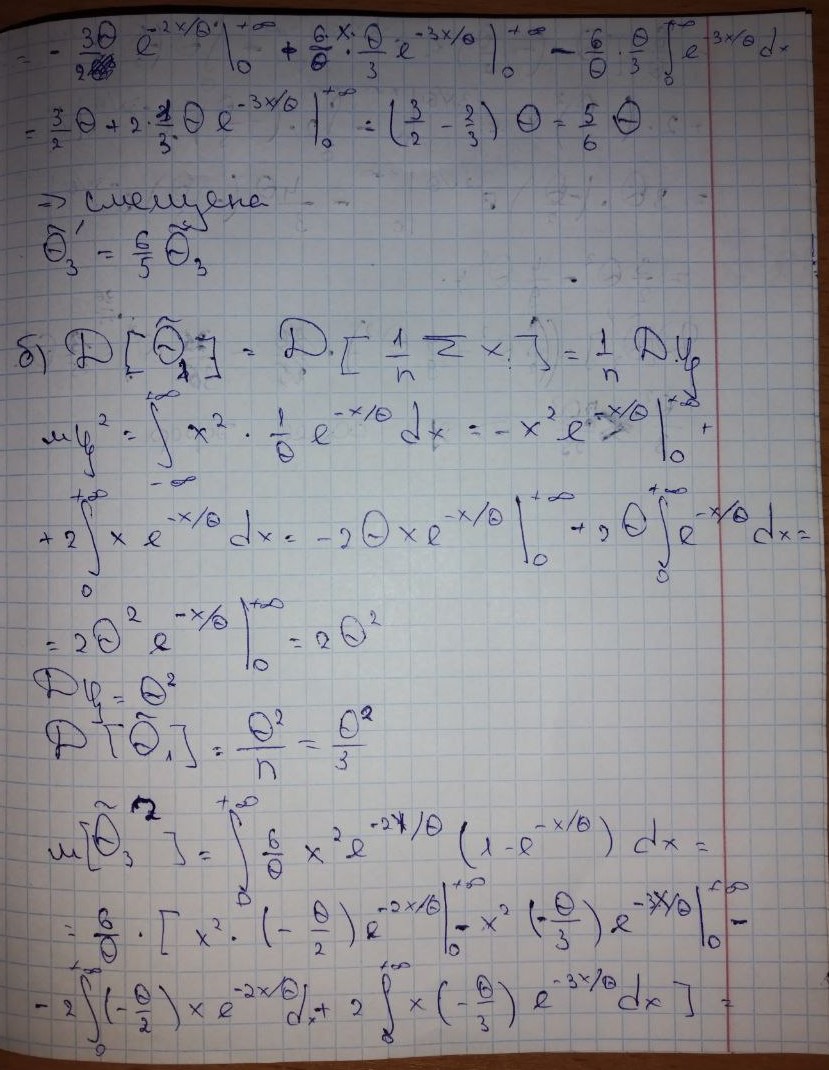 = - 3Θ/2 e^{-2x/Θ} |_0^{+∞} + 6x/Θ · Θ/3 e^{-3x/Θ} |_0^{+∞} - 6/Θ · Θ/3 ∫_0^∞ e^{-3x/Θ} dx
= 3/2 Θ + 2 · 1/3 Θ e^{-3x/Θ} |_0^{+∞} = (3/2 - 2/3) Θ = 5/6 Θ
⇒ смещена
Θ̃_3' = 6/5 Θ̃_3
б) D[Θ̃_1] = D[1/n Σ x_i] = 1/n Dξ
Mξ² = ∫_{-∞}^{+∞} x² · 1/Θ e^{-x/Θ} dx = -x² e^{-x/Θ} |_0^{+∞} +
+ 2 ∫_0^{+∞} x e^{-x/Θ} dx = -2Θ x e^{-x/Θ} |_0^{+∞} + 2Θ ∫_0^{+∞} e^{-x/Θ} dx =
= 2Θ² e^{-x/Θ} |_0^{+∞} = 2Θ²
Dξ = Θ²
D[Θ̃_1] = Θ²/n = Θ²/3
M[Θ̃_3²] = ∫_0^{+∞} 6/Θ x² e^{-2x/Θ} (1 - e^{-x/Θ}) dx =
= 6/Θ · [x² · (-Θ/2) e^{-2x/Θ} |_0^{+∞} - x² (-Θ/3) e^{-3x/Θ} |_0^{+∞} -
- 2 ∫_0^{+∞} (-Θ/2) x e^{-2x/Θ} dx + 2 ∫_0^{+∞} x (-Θ/3) e^{-3x/Θ} dx] =